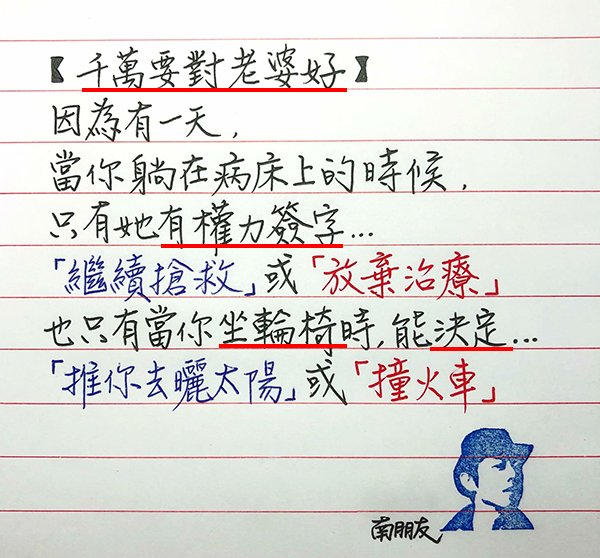 【千萬要對老婆好】
因為有一天，
當你躺在病床上的時候，
只有她有權力簽字…
「繼續搶救」或「放棄治療」
也只有當你坐輪椅時，能決定…
「推你去曬太陽」或「撞火車」
南朋友